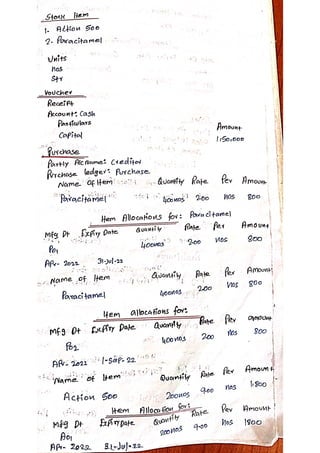 Stock Item
1- Action 500
2- Paracitamel
Units
nos
Str
Voucher
Receipt
Account: Cash
Particulars Amount
Capital 1:50,000
Purchase
Partly Ac name: Creditor
Purchase ledger: Purchase
Name of Item Quantity Rate Per Amount
Paracitamel 400nos 200 nos 800
Item Allocations for: Paracitamel
Mfg Dt Expiry Date Quantity Rate Per Amount
Po1 400nos 200 nos 800
Apr- 2022 31-Jul-22
Name of Item Quantity Rate Per Amount
Paracitamel 400nos 200 nos 800
Item allocations for:
Mfg Dt Expiry Date Quantity Rate Per amount
Po2 400nos 200 nos 800
Apr- 2022 1-Sap-22
Name of Item Quantity Rate Per Amount
Action 500 200nos 900 nos 1800
Item Allocation for:
Mfg Dt Expiry Date Quantity Rate Per Amount
Ao1 200nos 900 nos 1800
Apr- 2022 31-Jul-22